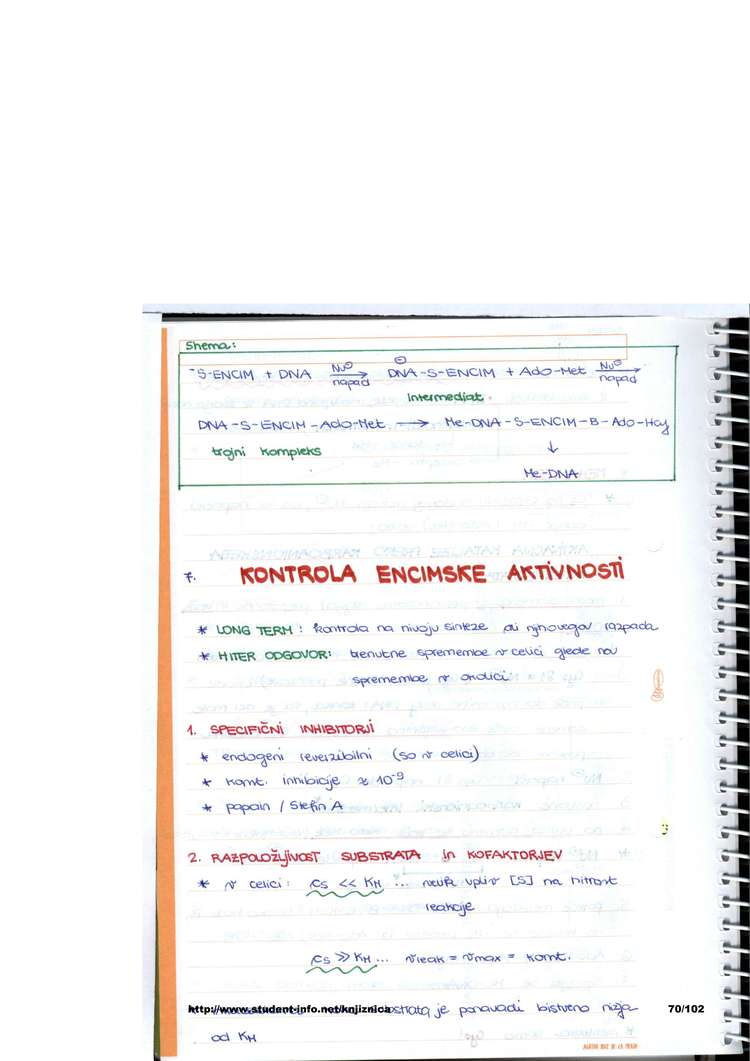 Shema:
⁻S-ENCIM + DNA Nu⊖ napad → DNA⊖-S-ENCIM + Ado-Met Nu⊖ napad →
Intermediat.
DNA-S-ENCIM-Ado-Met → Me-DNA-S-ENCIM-B-Ado-Hcy
trojni kompleks ↓
Me-DNA
7. KONTROLA ENCIMSKE AKTIVNOSTI
* LONG TERM: kontrola na nivoju sinteze ali njihovega razpada
* HITER ODGOVOR: trenutne spremembe v celici glede na
spremembe v okolici
1. SPECIFIČNI INHIBITORJI
* endogeni reverzibilni (so v celici)
* konst. inhibicije ≈ 10⁻⁹
* papain / Stefin A
2. RAZPOLOŽLJIVOST SUBSTRATA in KOFAKTORJEV
* v celici: cs << KM ... velik vpliv [S] na hitrost
reakcije
cs >> KM ... vreak = vmax = konst.
http://www.student-info.net/knjiznica
substrata je ponavadi bistveno nižja
70/102
od KM
AGATHA RUIZ DE LA PRADA